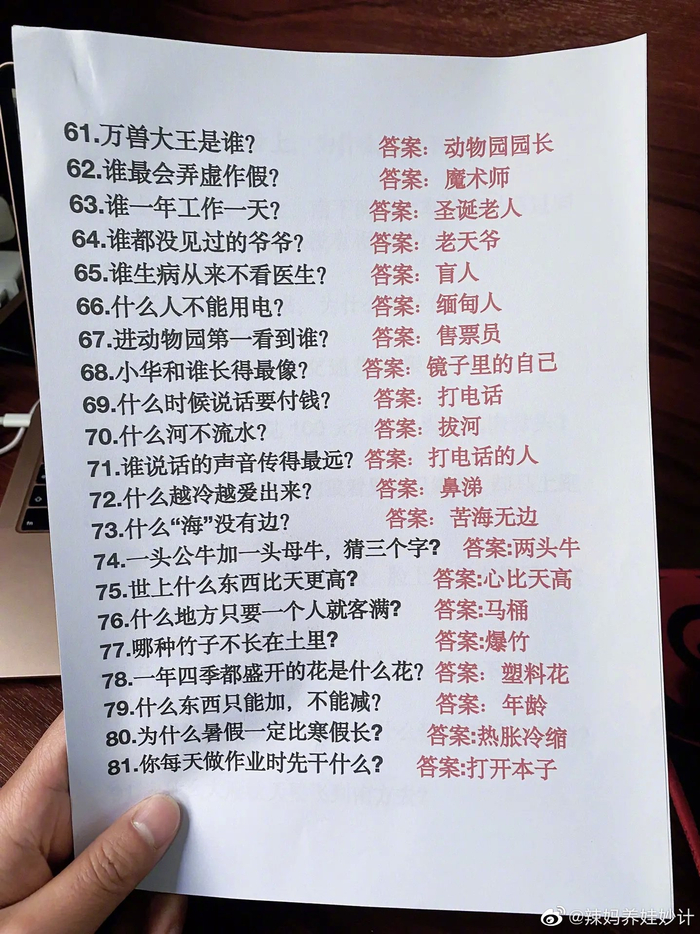 61.万兽大王是谁? 答案：动物园园长
62.谁最会弄虚作假? 答案：魔术师
63.谁一年工作一天? 答案：圣诞老人
64.谁都没见过的爷爷? 答案：老天爷
65.谁生病从来不看医生? 答案：盲人
66.什么人不能用电? 答案：缅甸人
67.进动物园第一看到谁? 答案：售票员
68.小华和谁长得最像? 答案：镜子里的自己
69.什么时候说话要付钱? 答案：打电话
70.什么河不流水? 答案：拔河
71.谁说话的声音传得最远? 答案：打电话的人
72.什么越冷越爱出来? 答案：鼻涕
73.什么“海”没有边? 答案：苦海无边
74.一头公牛加一头母牛，猜三个字? 答案:两头牛
75.世上什么东西比天更高? 答案:心比天高
76.什么地方只要一个人就客满? 答案:马桶
77.哪种竹子不长在土里? 答案:爆竹
78.一年四季都盛开的花是什么花? 答案：塑料花
79.什么东西只能加，不能减? 答案：年龄
80.为什么暑假一定比寒假长? 答案:热胀冷缩
81.你每天做作业时先干什么? 答案:打开本子
@辣妈养娃妙计